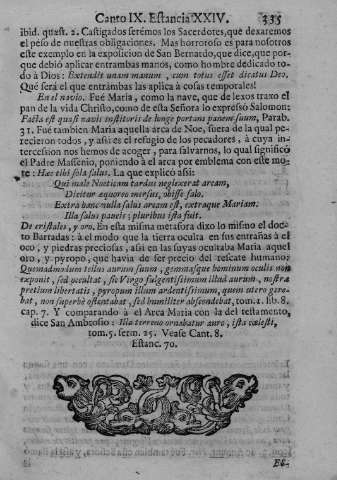 Canto IX. Estancia XXIV. 335
ibid. quæst. 2. Castigados serémos los Sacerdotes, que dexaremos
el peso de nuestras obligaciones. Mas horroroso es para nosotros
este exemplo en la exposicion de San Bernardo, que dice, que por-
que debió aplicar entrambas manos, como hombre dedicado to-
do à Dios: Extendit unam manum, cum totus esset dicatus Deo.
Qué será el que entrambas las aplica à cosas temporales!
En el navio. Fué Maria, como la nave, que de lexos traxo el
pan de la vida Christo, como de esta Señora lo expresó Salomon:
Facta est quasi navis institoris de longe portans panem suum, Parab.
31. Fué tambien Maria aquella arca de Noe, fuera de la qual pe-
recieron todos, y asi es el refugio de los pecadores, à cuya in-
tercession nos hemos de acoger, para salvarnos, lo qual significó
el Padre Massenio, poniendo à el arca por emblema con este mo-
te: Hæc tibi sola salus. La que explicó assi:
Qui male Noeticam tardus neglexerat arcam,
Dicitur æquoreo mersus, obisse salo.
Extra hanc nulla salus arcam est, extraque Mariam.
Illa salus paucis; pluribus ista fuit.
De cristales, y oro. En esta misma metafora dixo lo mismo el doc-
to Barradas: à el modo que la tierra oculta en sus entrañas à el
oro, y piedras preciosas, asi en las suyas ocultaba Maria aquel
oro, y pyropo, que havia de ser precio del rescate humano:
Quemadmodum tellus aurum suum, gemmasque hominum oculis non
exponit, sed occultat, sic Virgo fulgentissimum illud aurum, nostræ
pretium libertatis, pyropum illum ardentissimum, quem utero gera-
bat, non superbè ostentabat, sed humiliter abscondebat, tom. 1. lib. 8.
cap. 7. Y comparando à el Arca Maria con la del testamento,
dice San Ambrosio: Illa terreno ornabatur auro, ista cælesti,
tom. 5. serm. 25. Vease Cant. 8.
Estanc. 70.
Es-